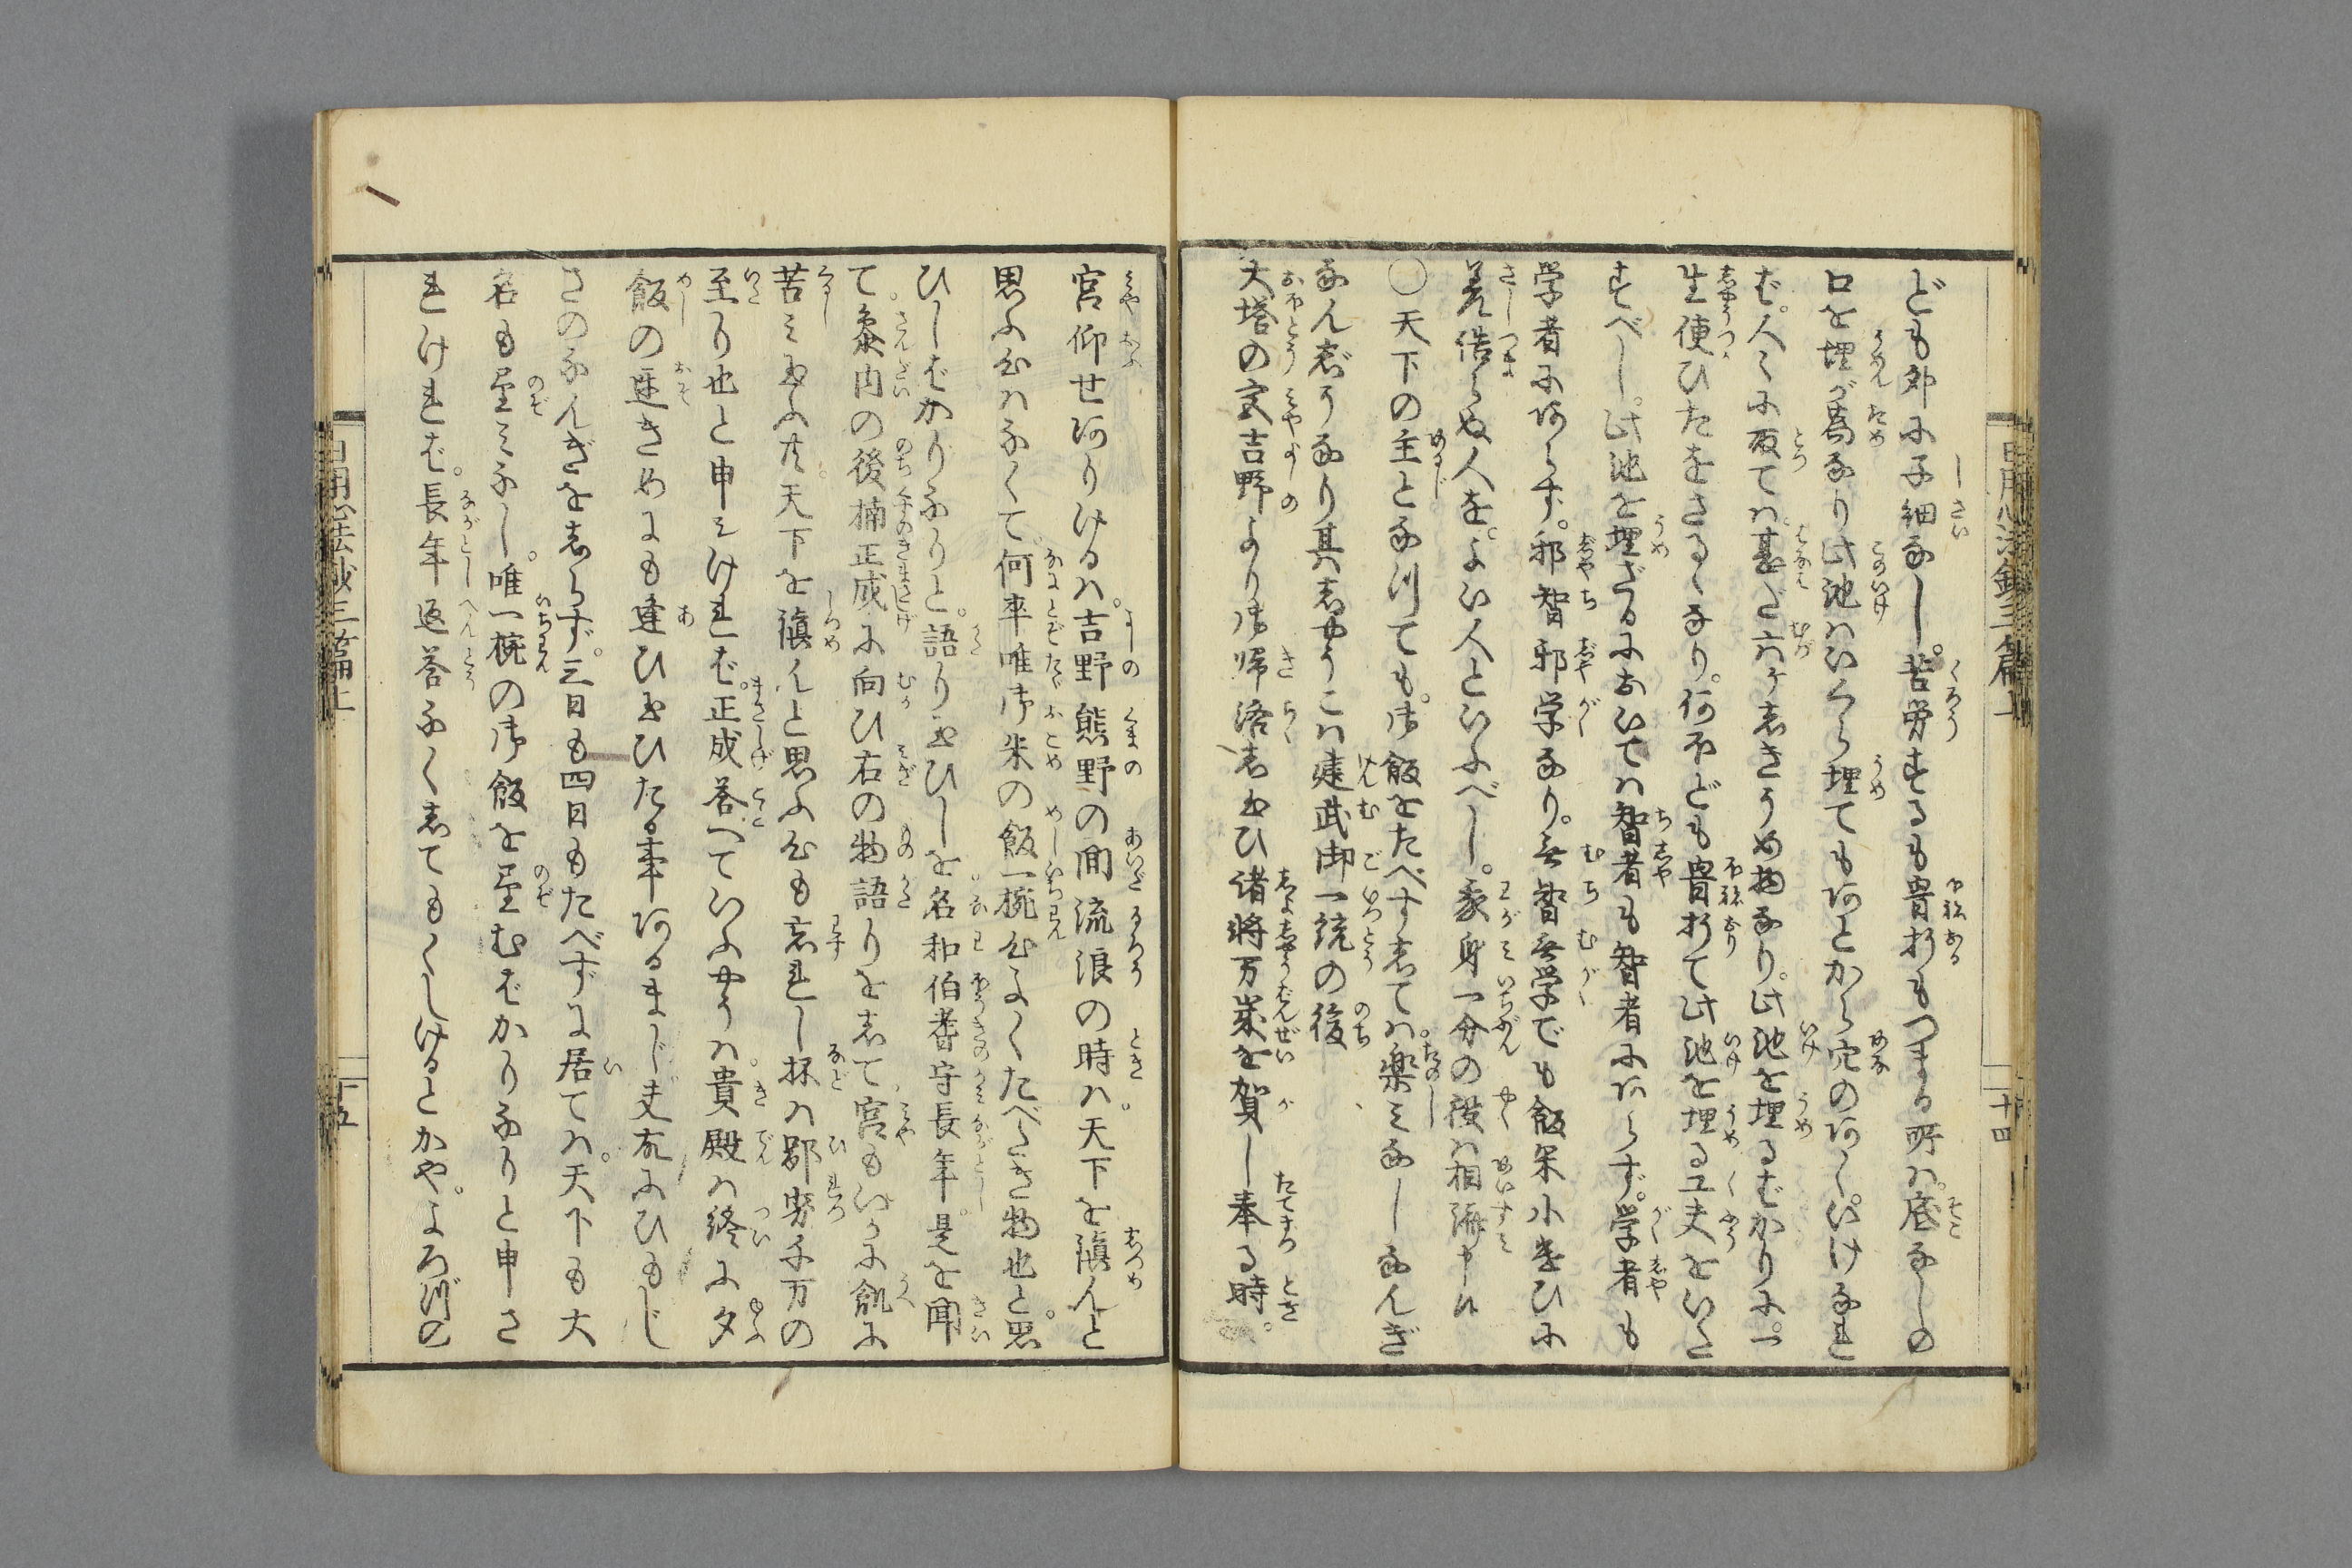 ども爰に子細なし。苦労するも骨折もつまる所は。底なしの
口を埋が為なり此池はいくら埋てもあとから穴のあくいけなれ
ば。人々に取ては甚だむづかしきうめ物なり。此池を埋るばかりに。一
生使ひたをさるゝなり。何ほども骨折て此池を埋る工夫をいた
すべし。此池を埋ざるにおいては智者も智者にあらず。学者も
学者にあらず。邪智邪学なり。無智無学でも飯米小遣ひに
差借らぬ人を。よい人といふべし。我身一分の役は相済申候
〇天下の主となつても。御飯をたべずしては。楽みなしなんぎ
なんぎうなり其はしやうこは建武御一統の後
大塔の宮吉野より御帰洛し給ひ諸将万歳を賀し奉る時。
宮仰せありけるは。吉野熊野の間流浪の時は。天下を鎮んと
思ふ心はなくて。何卒唯御米の飯一椀心よくたべたき物也と。思
ひしばかりなりと。語り給ひしを名和伯耆守長年。是を聞
て。参内の後楠正成に向ひ右の物語りをして。宮もいかに飢に
苦み給ふ共。天下を鎮んと思ふ心も忘れし抔は鄙劣千万の
至り也と申されければ。正成答へていふやうは。貴殿は終に夕
飯の遅きめにも逢ひ給ひた事あるまじ。夫故にひもじ
さのなんぎをしらず。三日も四日もたべずに居ては。天下も大
名も望みなし。唯一椀の御飯を望むばかりなりと申さ
れければ。長年返答なくしてもくしけるとかや。よろづの
日用心法鈔三篇上
十四
日用心法鈔三篇上
十五